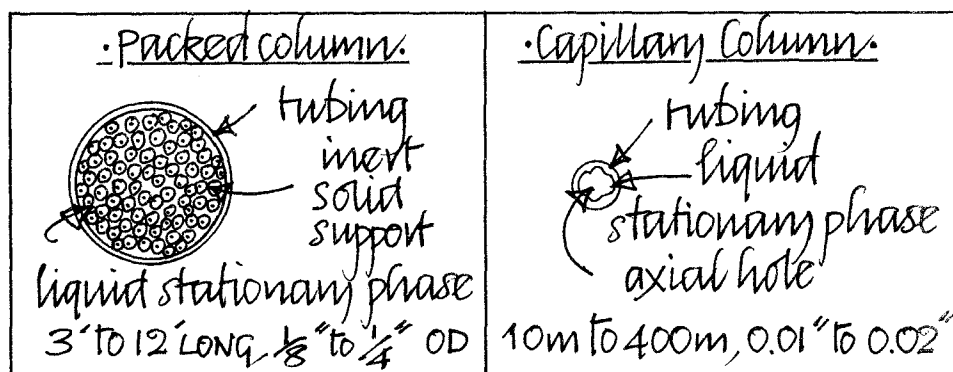 ·Packed column·
tubing
inert
solid
support
liquid stationary phase
3' TO 12' LONG, 1/8" to 1/4" OD
·Capillary Column·
tubing
liquid
stationary phase
axial hole
10m to 400m, 0.01" to 0.02"